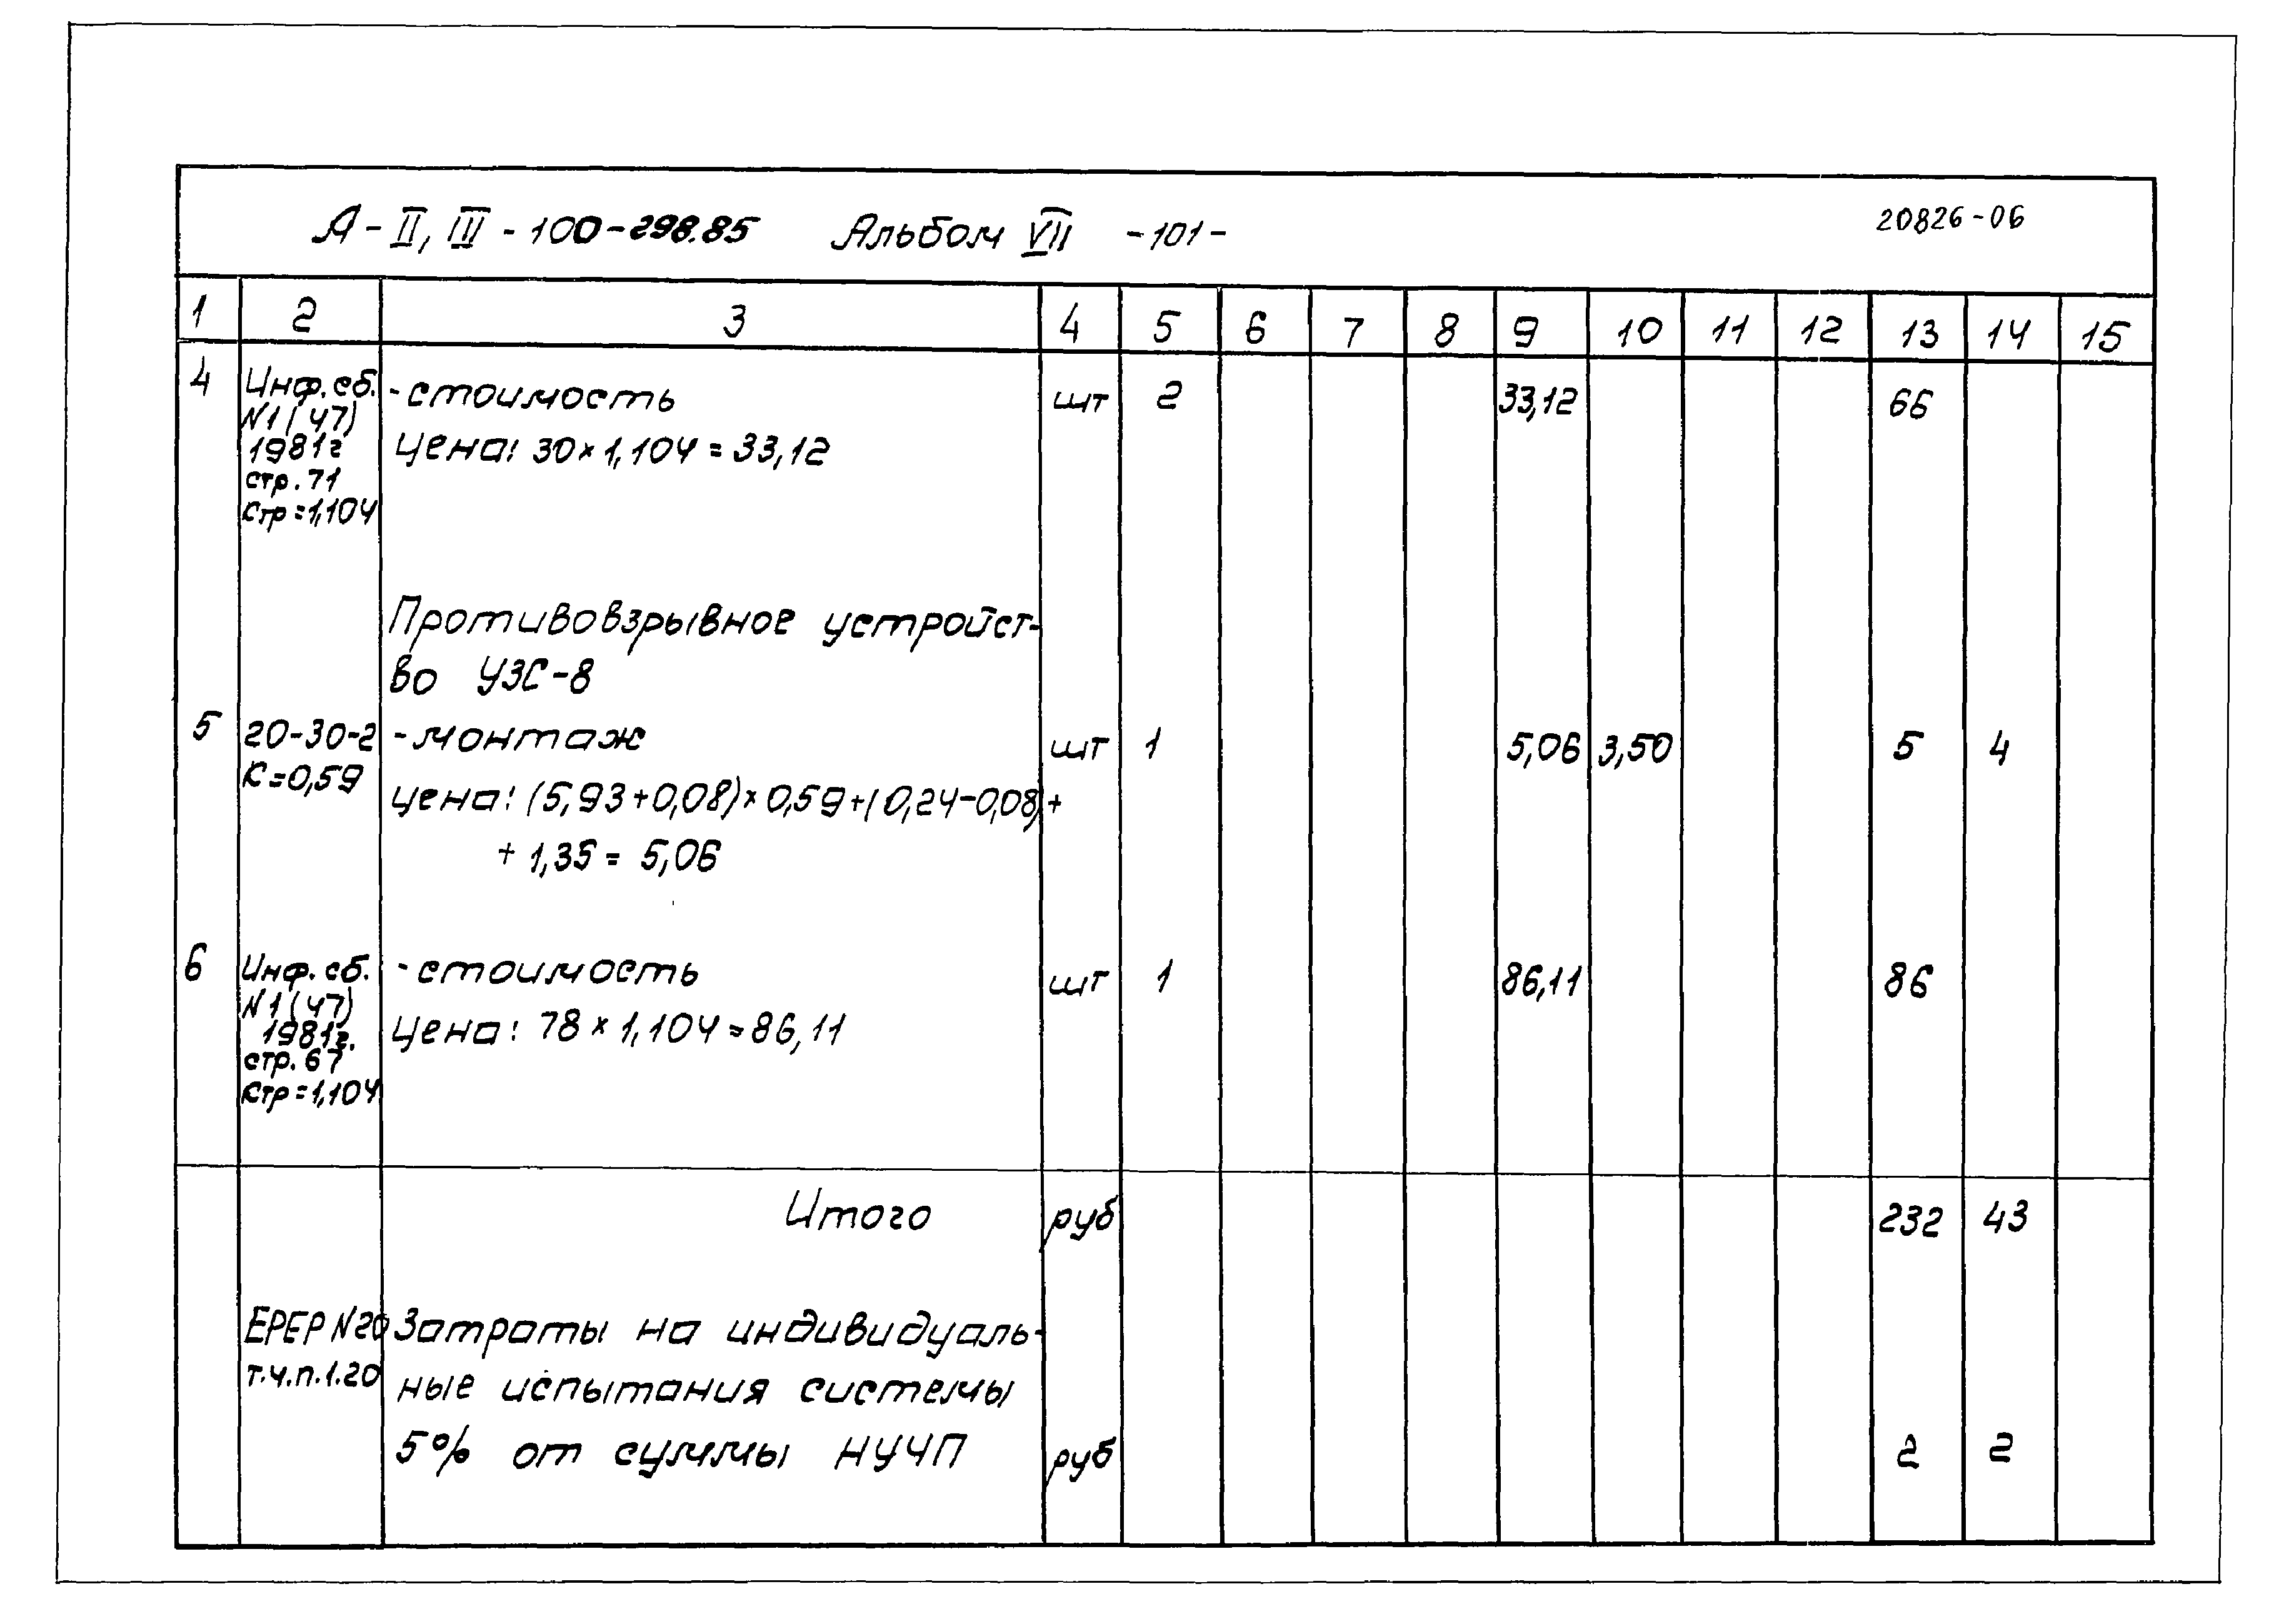 А-II, III-100-298.85 Альбом VII -101- 20826-06
1 2 3 4 5 6 7 8 9 10 11 12 13 14 15
4 Инф. сб. -стоимость шт 2 33,12 66
N1(47)
1981г цена: 30×1,104=33,12
стр. 71
Ктр=1,104
Противовзрывное устройст-
во УЗС-8
5 20-30-2 -монтаж шт 1 5,06 3,50 5 4
К=0,59
цена: (5,93+0,08)×0,59+(0,24-0,08)+
+ 1,35 = 5,06
6 Инф. сб. -стоимость шт 1 86,11 86
N1(47)
1981г. цена: 78×1,104=86,11
стр. 67
Ктр=1,104
Итого руб 232 43
ЕРЕР N20 Затраты на индивидуаль-
т.ч.п.1.20 ные испытания системы
5% от суммы НУЧП руб 2 2